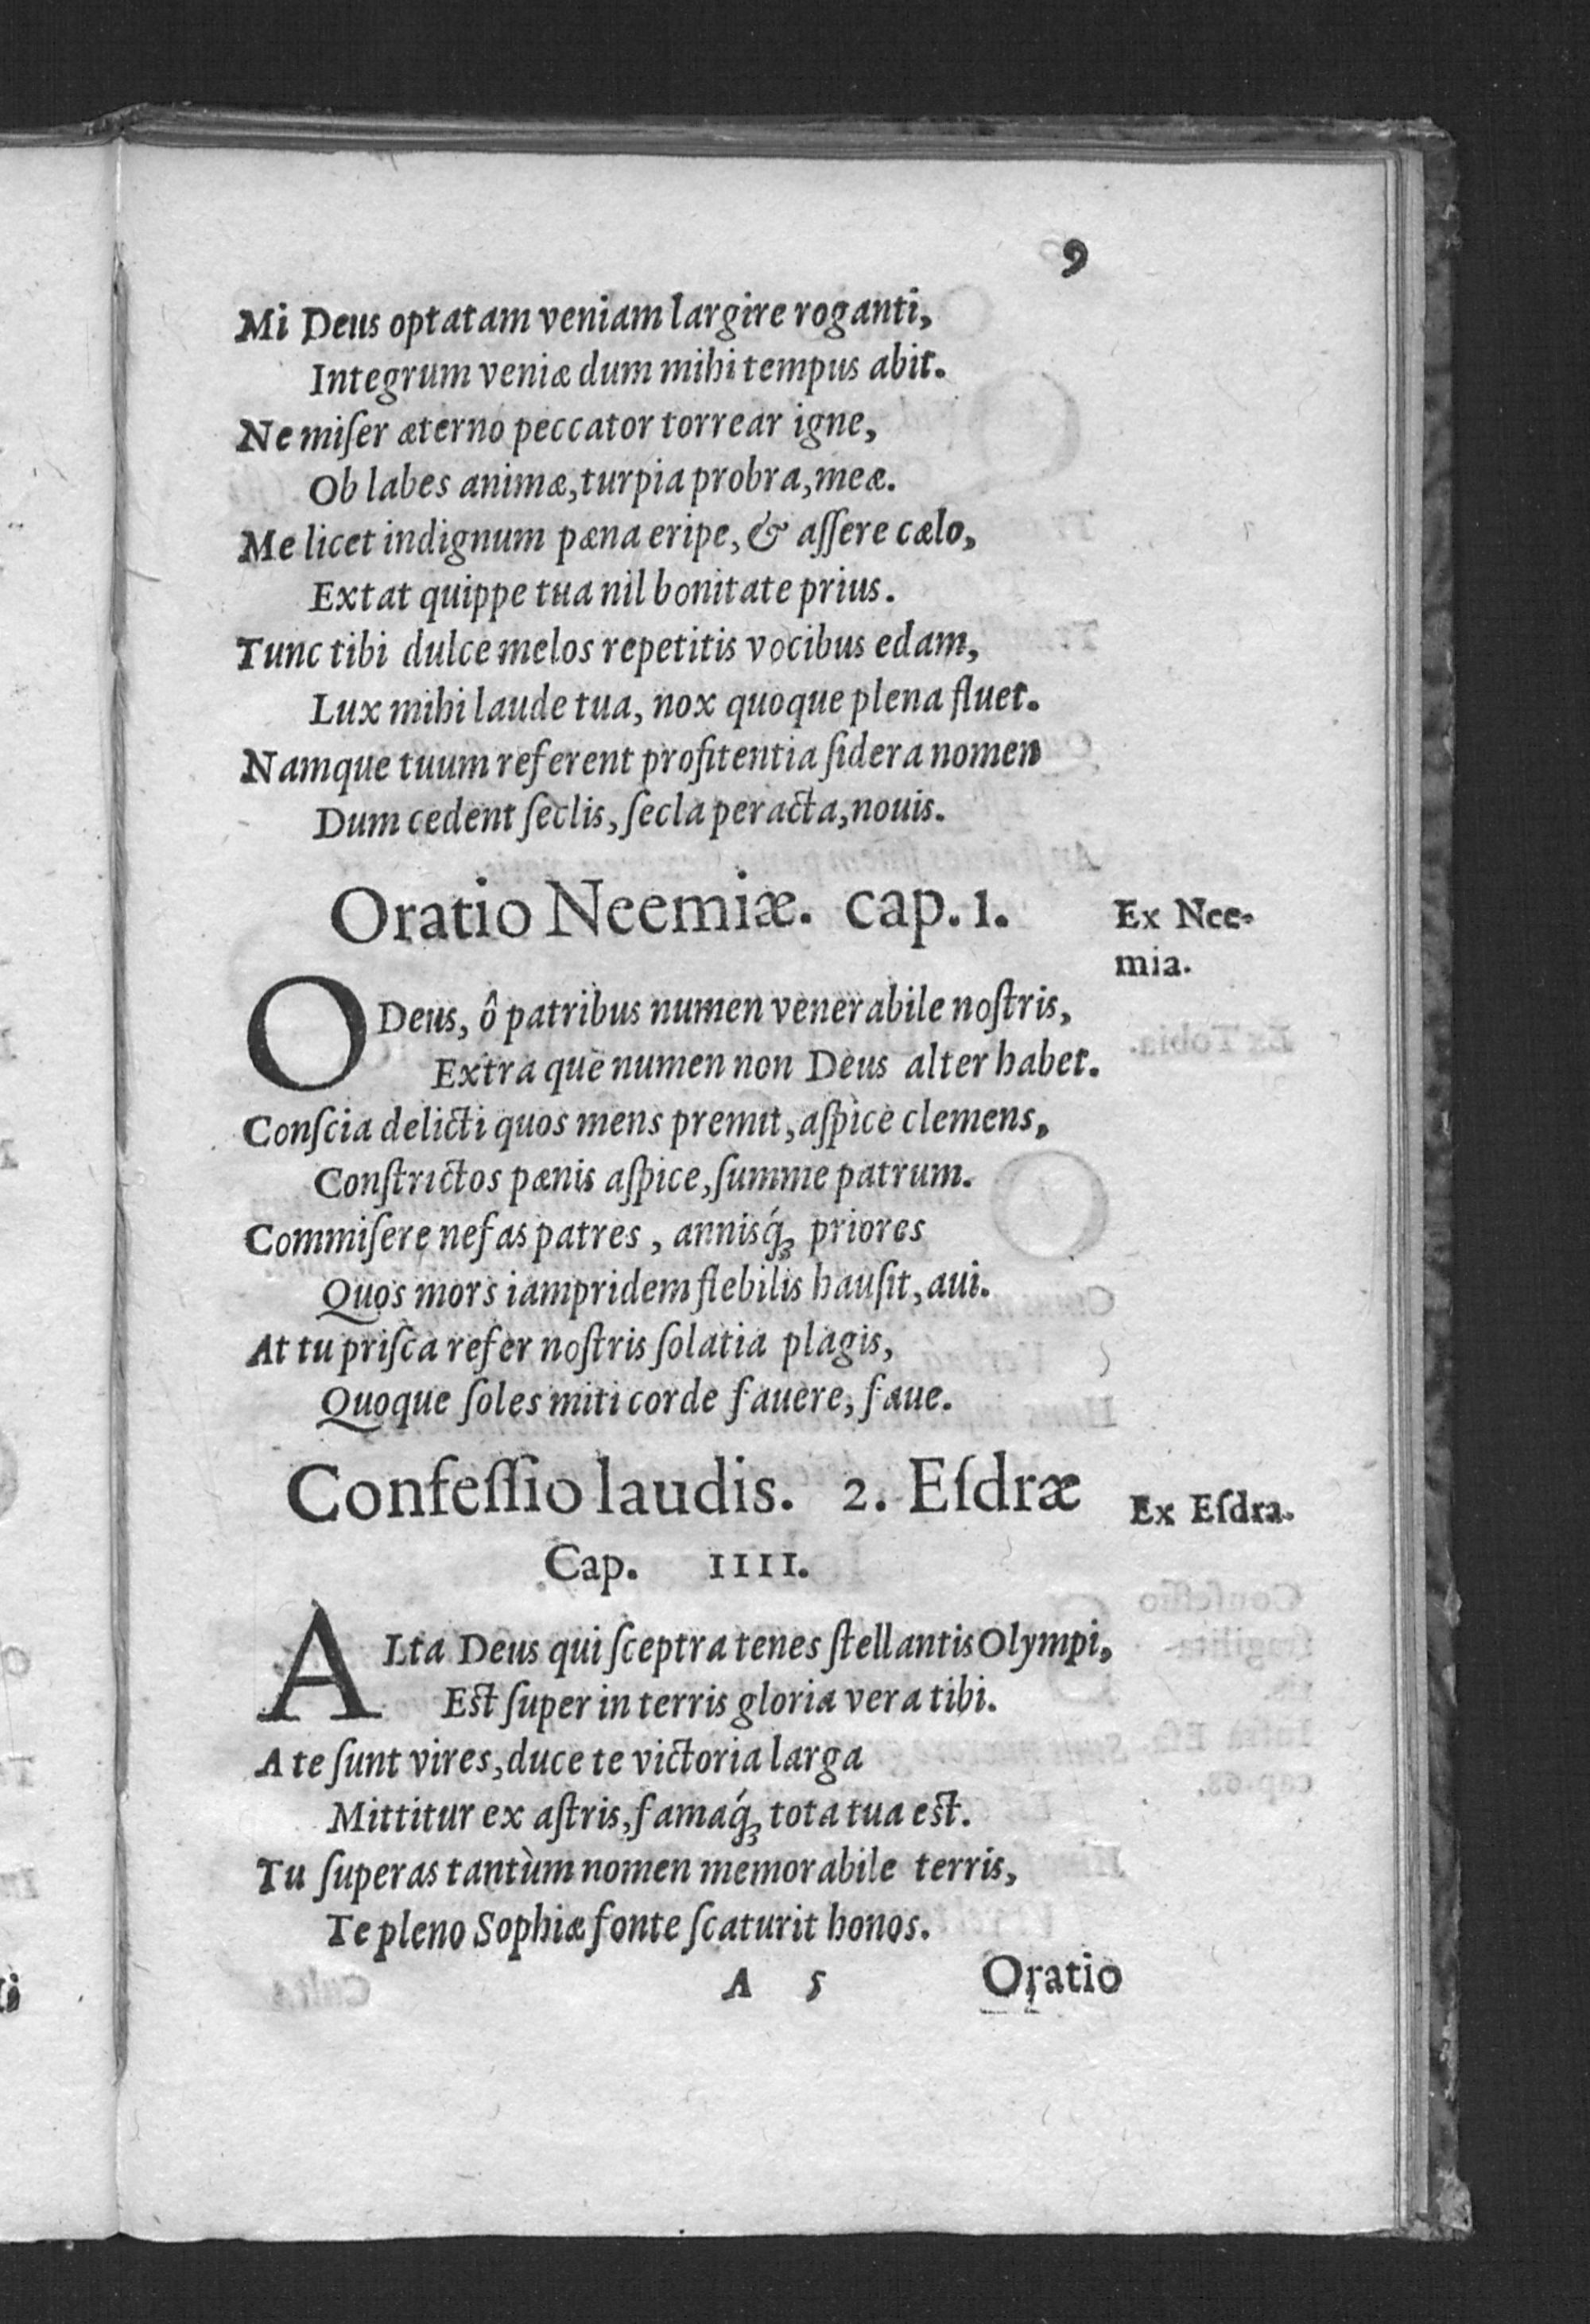 9
Mi Deus optatam veniam largire roganti,
Integrum veniæ dum mihi tempus abit.
Ne miſer æterno peccator torrear igne,
Ob labes animæ, turpia probra, meæ.
Me licet indignum pæna eripe, & aſſere cælo,
Extat quippe tua nil bonitate prius.
Tunc tibi dulce melos repetitis vocibus edam,
Lux mihi laude tua, nox quoque plena fluet.
Namque tuum referent profitentia ſidera nomen
Dum cedent ſeclis, ſecla peracta, nouis.
Oratio Neemiæ. cap. 1.
Ex Nee-
mia.
O Deus, ô patribus numen venerabile noſtris,
Extra que numen non Deus alter habet.
Conſcia delicti quos mens premit, aſpice clemens,
Conſtrictos pænis aſpice, ſumme patrum.
Commiſere nefas patres, annisq́ꝫ priores
Quos mors iampridem flebilis hauſit, aui.
At tu priſca refer noſtris ſolatia plagis,
Quoque ſoles miti corde fauere, faue.
Confeſſio laudis. 2. Eſdræ
Ex Eſdra.
Cap. IIII.
ALta Deus qui ſceptra tenes ſtellantis Olympi,
Eſt ſuper in terris gloria vera tibi.
A te ſunt vires, duce te victoria larga
Mittitur ex aſtris, famaq́ꝫ tota tua eſt.
Tu ſuperas tantùm nomen memorabile terris,
Te pleno Sophiæ fonte ſcaturit honos.
A 5
Oratio